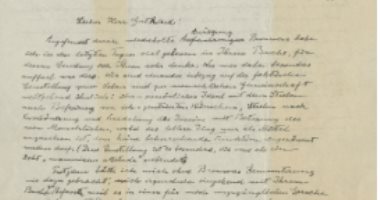 Lieber Herr Gutkind!
Angefeuert durch wiederholte Anregung Brouwers habe
ich in den letzten Tagen viel gelesen in Ihrem Buche, für
dessen Sendung ich Ihnen sehr danke. Was mir dabei besonders
auffiel war dies. Wir sind einander inbezug auf die faktische
Einstellung zum Leben und zur menschlichen Gemeinschaft
weitgehend ähnlich: persönliches Ideal mit dem Streben
nach Befreiung von ich-zentrierten Wünschen, Streben nach
Verschönerung und Veredelung des Daseins mit Betonung des
rein Menschlichen, wobei das leblose Ding nur als Mittel
anzusehen ist, dem keine beherrschende Funktion eingeräumt
werden darf. (Diese Einstellung ist es besonders, die uns als ein
echt "unamerican attitude" verbindet.)
Trotzdem hätte ich mich ohne Brouwers Ermunterung
nie dazu gebracht, mich irgendwie eingehend mit Ihrem
Buche zu befassen, weil es in einer für mich unzugänglichen Sprache